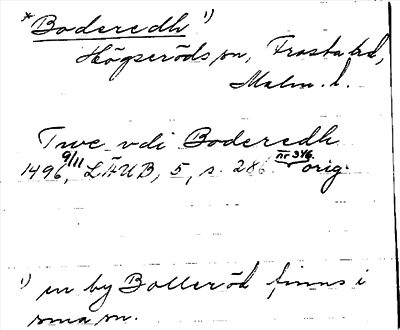 *Boderedh 1)
Högseröds sn, Frosta hd,
Malm. l.
Twe vdi Boderedh
1496 9/11, LÄUB, 5, s. 286. nr 346. orig.
1) en by Bolleröd finns i
sma sn.